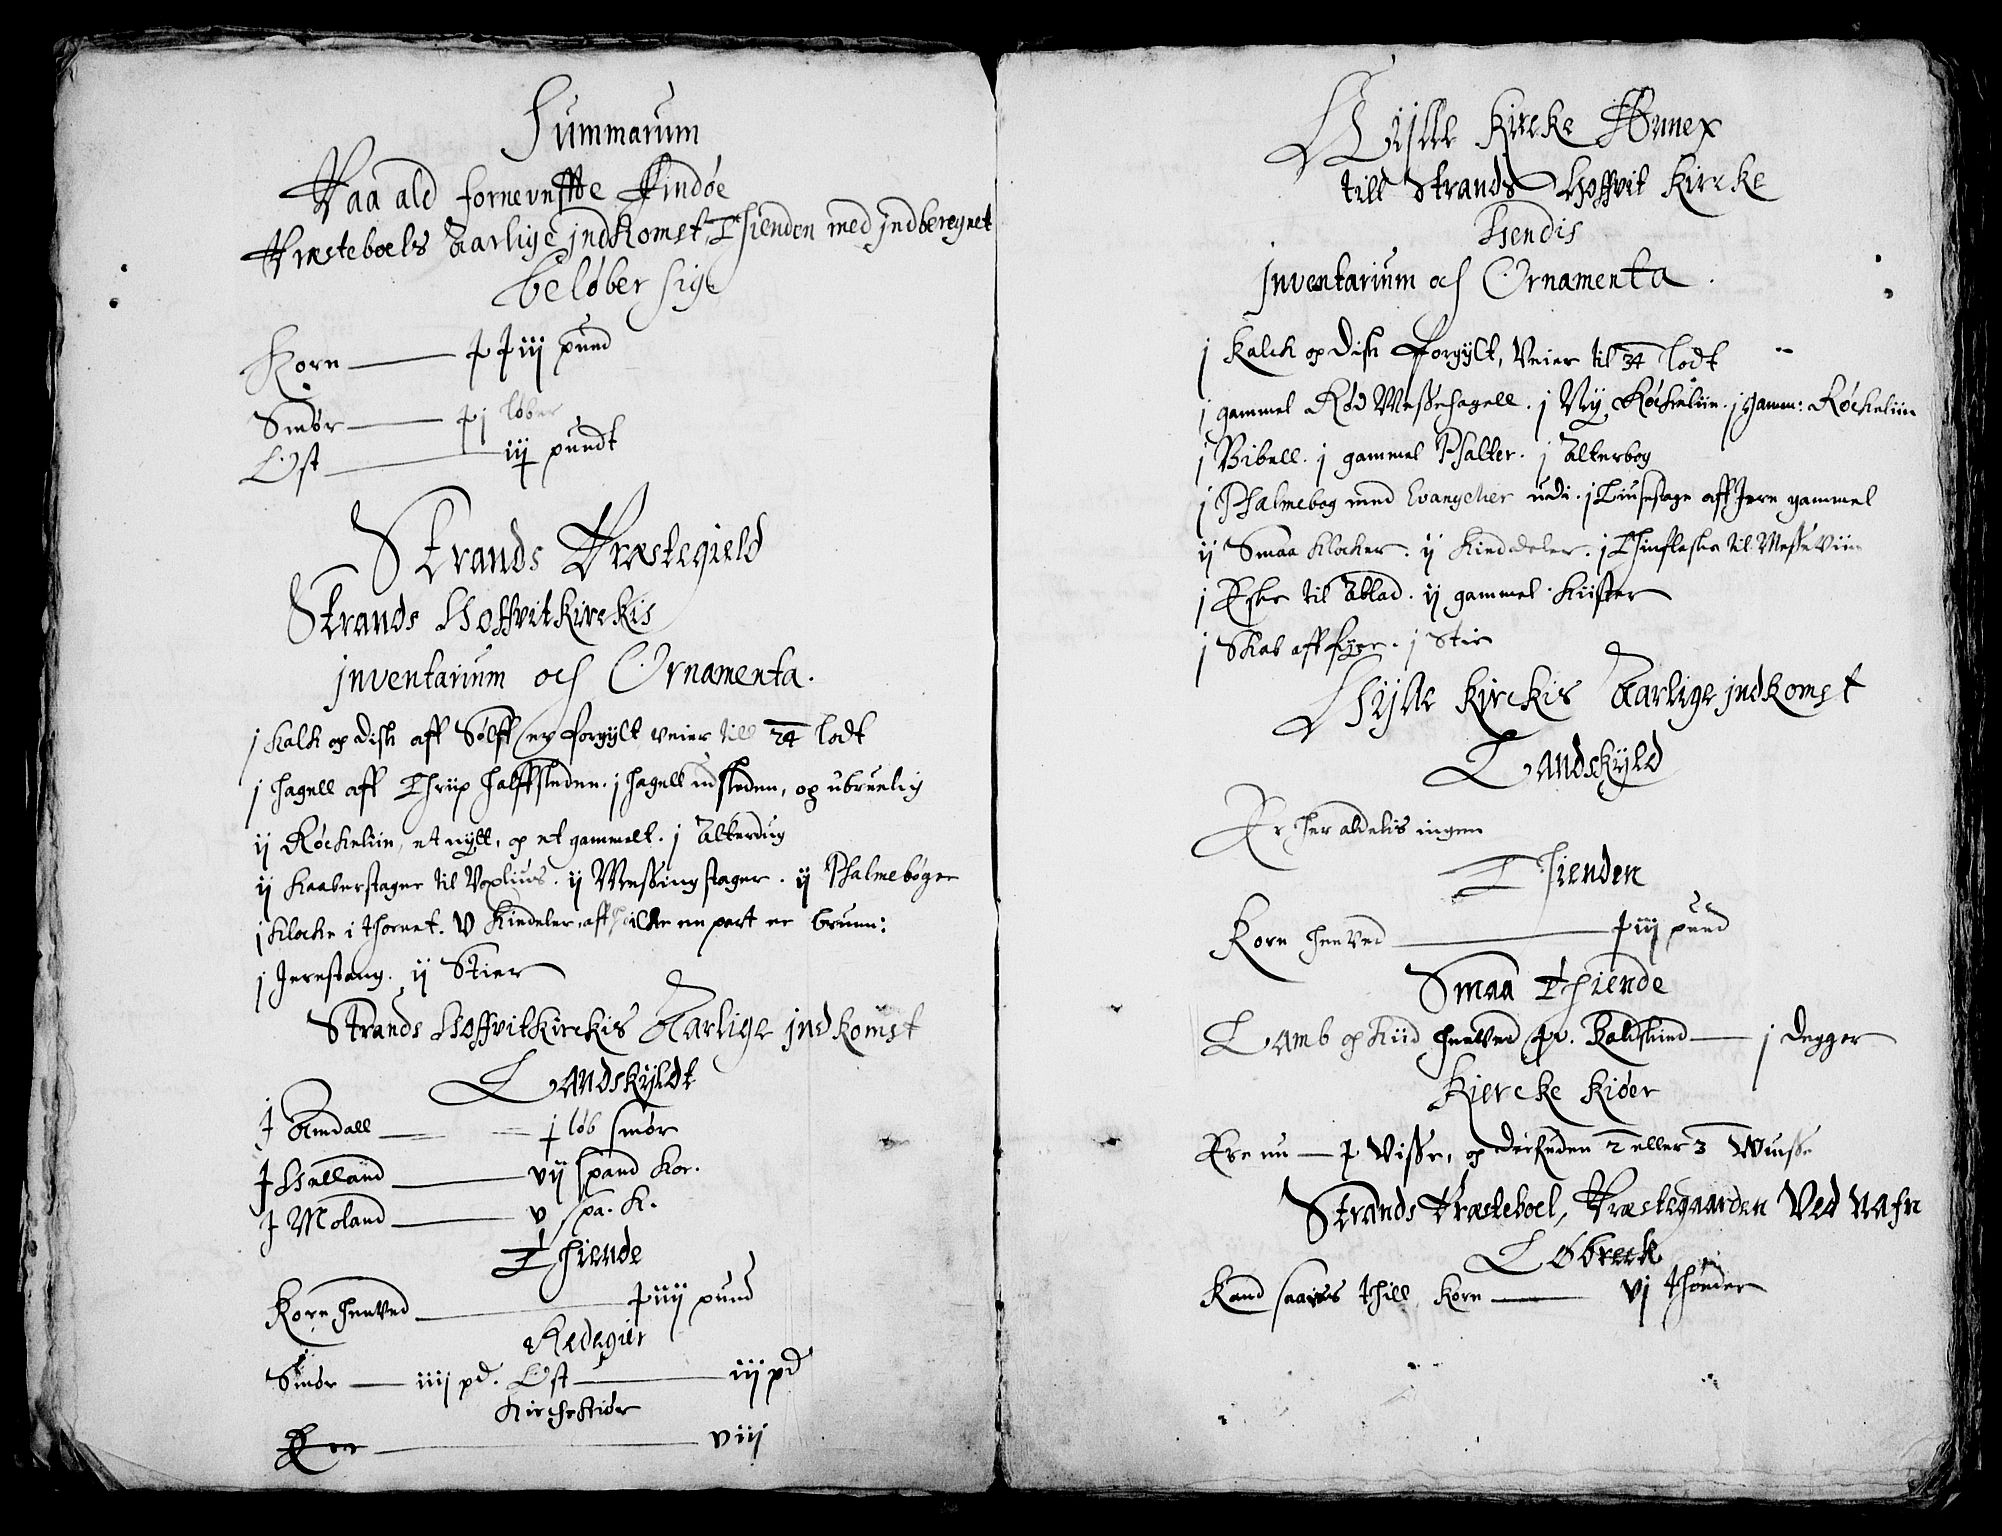 Summarum
Paa ald fornevnffte Findøe
Præsteboels Aarlige jndkomst, Thienden med jndberegnet
beløber sige
Korn — XXiij pund
Smør — Xj løber
Ost — iij pundt
Strands Præstegield
Strands Hoffvitkirckis
jnventarium och Ornamenta.
j kalk og disk aff Sølff er forgylt veier till 24 lodt
j hagell aff Thrip halffsleden. j hagell udsleden, og ubruelig
ij Røckeliin, et nytt, og et gammelt. j Alterdug
ij Kaaberstager til Voxlius. ij Messing stager. ij Psalmebøger
j Klocke i thornet. V Kiedeler, aff huilcke en part er brunn:
j Jernstang. ij Stier
Strands Hoffvitkirckis Aarlige jndkomst
Landskyldt
J Amdall — j løb smør
J Helland — vij spand Kor.
J Moland — v spa. K.
Thiende
Korn henved — Xiiij pund
Redegier
Smør — iiij pd. Ost — iij pd
Kirchekiør
Er — viij
Gyslle Kircke Annex
till Strands Hoffvit Kircke
Hendis
jnventarium och Ornamenta.
j Kalck og Disk Forgylt, Veier til 34 lodt
j gammel Rød Messehagell. j Ny Røckeliin. j gamm: Røckeliin
j Bibell. j gammel Psalter. j Alterbog
j Psalmebog med Evangelier udi. j Liusestage aff Jern gammel
ij Smaa Klocker. ij Kiedeler. j Thinflaske til Messe Viin
j Eske til Ablad. ij gammel Kiister
j Skab aff fyer. j Stie
Gyslle Kirckis Aarlige jndkomst
Landskyld
Er her aldelis ingen
Thienden
Korn henved — Xiij pund
Smaa Thiende
Lamb og Kiid henved och Kalfskind — j Degger
Kiercke Kiøer
Ere nu — X Visse, og desuden 2 eller 3 Wuisse
Strands Præsteboel, Præstegaarden Ved nafn
Løbreck
Kand saaes thill Korn — vj thønder